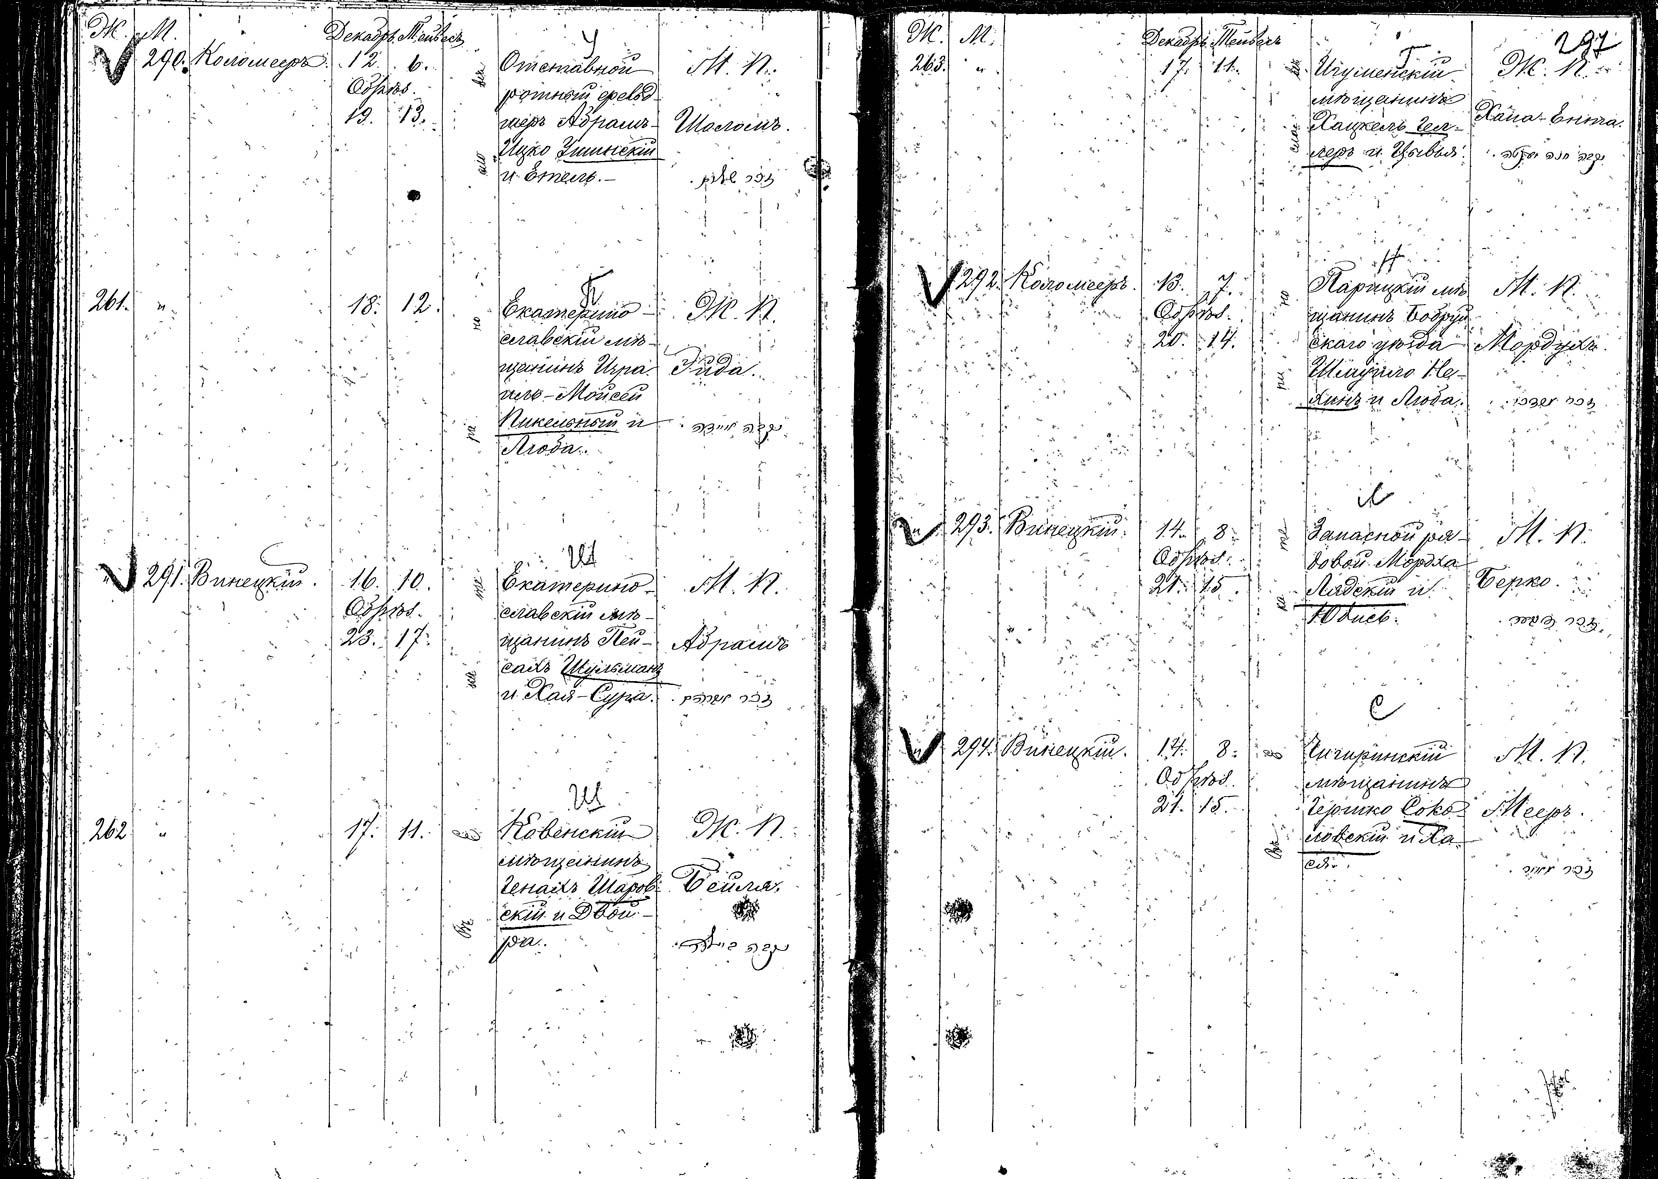 Ж. М. Декабр. Тейвесъ
290. Коломееръ. 12. 6. У
Обрѣз.
19. 13.
Отставной
ротный фельд-
шеръ Абрамъ-
Ицко Ушинскій
и Етель.
М. П.
Шоломъ.
זכר שלום
261. " 18. 12. П
Екатерино-
славскій мѣ-
щанинъ Изра-
иль-Мойсей
Пикельный и
Люба.
Ж. П.
נקבה
291. Винецкій. 16. 10. Ш
Обрѣз.
23. 17.
Екатерино-
славскій мѣ-
щанинъ Пей-
сахъ Шульманъ
и Хая-Сура.
М. П.
Абрамъ
זכר אברהם
262 " 17. 11. Ш
Ковенскій
мѣщанинъ
Генахъ Шаров-
скій и Двой-
ра.
Ж. П.
Бейля.
נקבה ביילע
Ж. М. Декабр. Тейвесъ 297
263. " 17. 11. Г
Игуменскій
мѣщанинъ
Хацкель Гел-
леръ и Цывья.
Ж. П.
Хана-Ента.
נקבה חנה יענטה
292. Коломееръ. 13. 7. Н
Обрѣз.
20. 14.
Паричкій мѣ-
щанинъ Бобруй
скаго уѣзда
Шмуйло Не-
хинъ и Люба.
М. П.
Мордухъ.
זכר מרדכי
293. Винецкій. 14. 8. Л
Обрѣз.
21. 15.
Запасной ря-
довой Мордха
Лядскій и
Юдисъ.
М. П.
Берко.
זכר
294. Винецкій. 14. 8. С
Обрѣз.
21. 15.
Чигиринскій
мѣщанинъ
Гершко Соко-
ловскій и Ха-
ся.
М. П.
Мееръ.
זכר מאיר